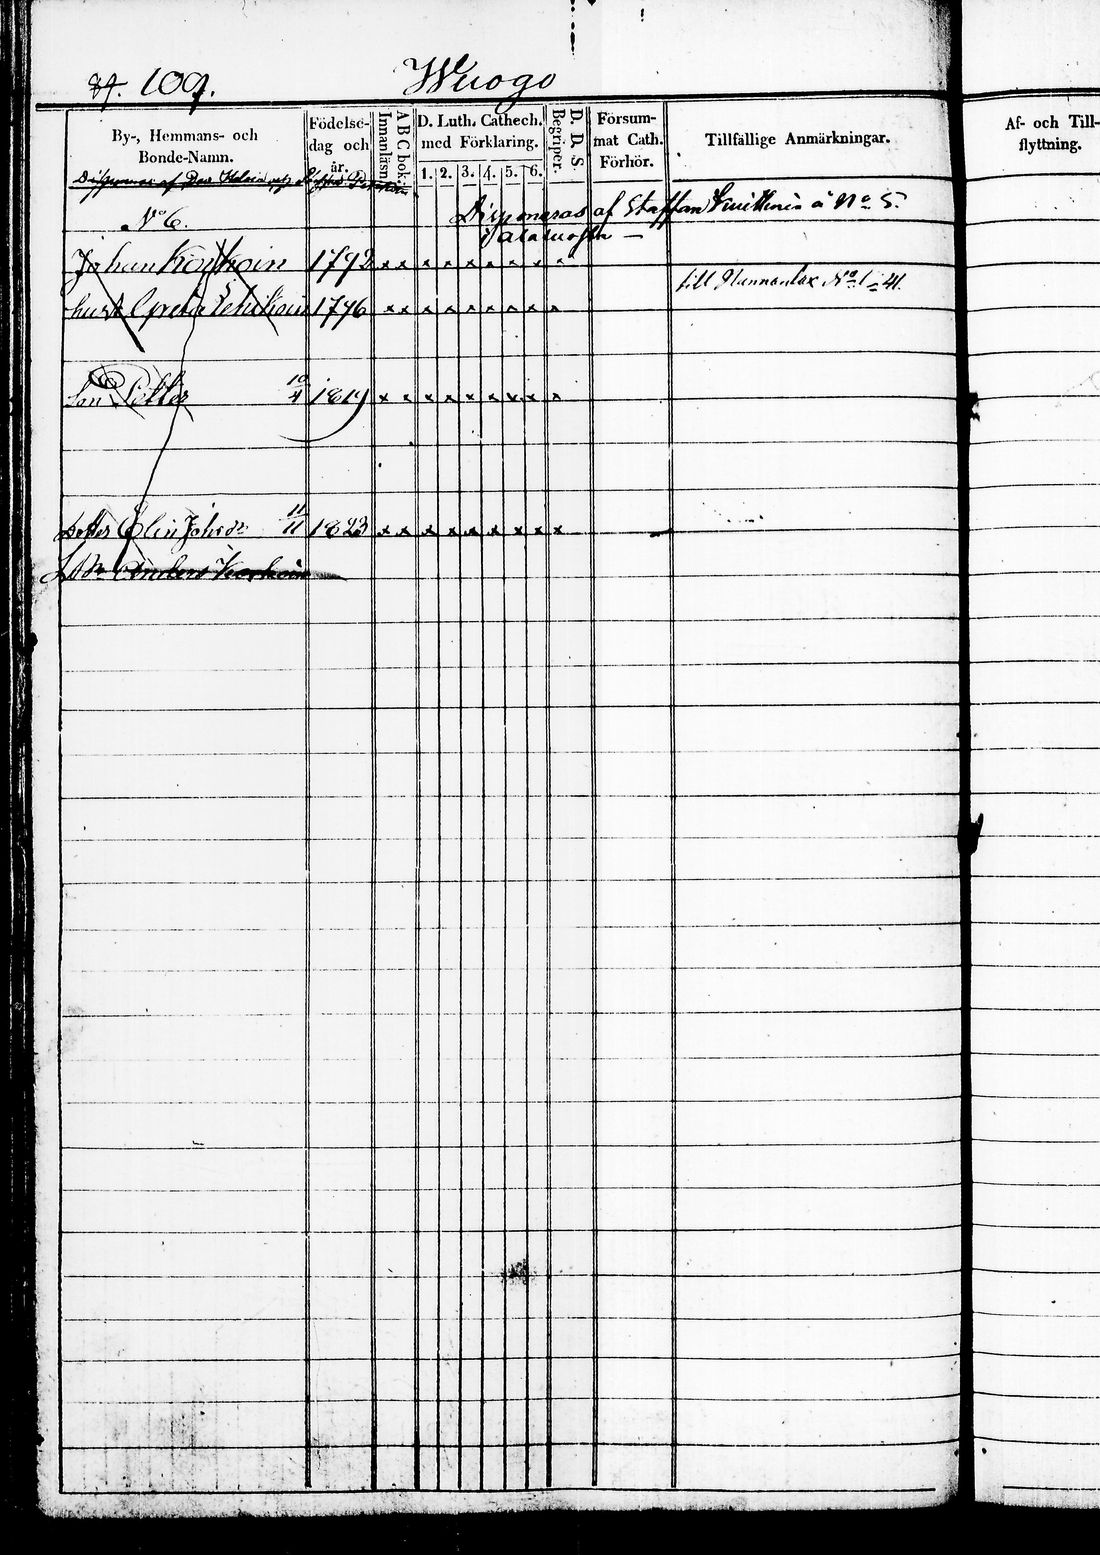 84. 109. Wuogo
By-, Hemmans- och Bonde-Namn.
Födelse-dag och år.
Innanläsn.
A B C bok.
D. Luth. Cathech. med Förklaring.
1. 2. 3. 4. 5. 6.
Begriper.
D. D. S.
Försum-mat Cath. Förhör.
Tillfällige Anmärkningar.
Af- och Till-flyttning.
No 6.
Disponeras af Staffan à No 5.
Johan Korhoin 1792 x x x x x x x x x
till No 1 - 41.
hust Greta 1796 x x x x x x x x x
Son Petter 10/4 1819 x x x x x x x x x
Dotter Elin Johsdr 11/11 1823 x x x x x x x x x
Anders Korhoin